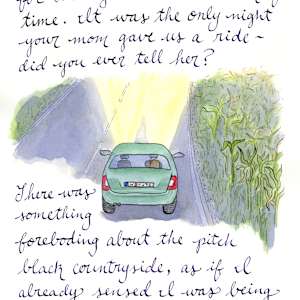 time. It was the only night
your mom gave us a ride -
did you ever tell her?
There was
something
foreboding about the pitch
black countryside, as if I
already sensed I was being